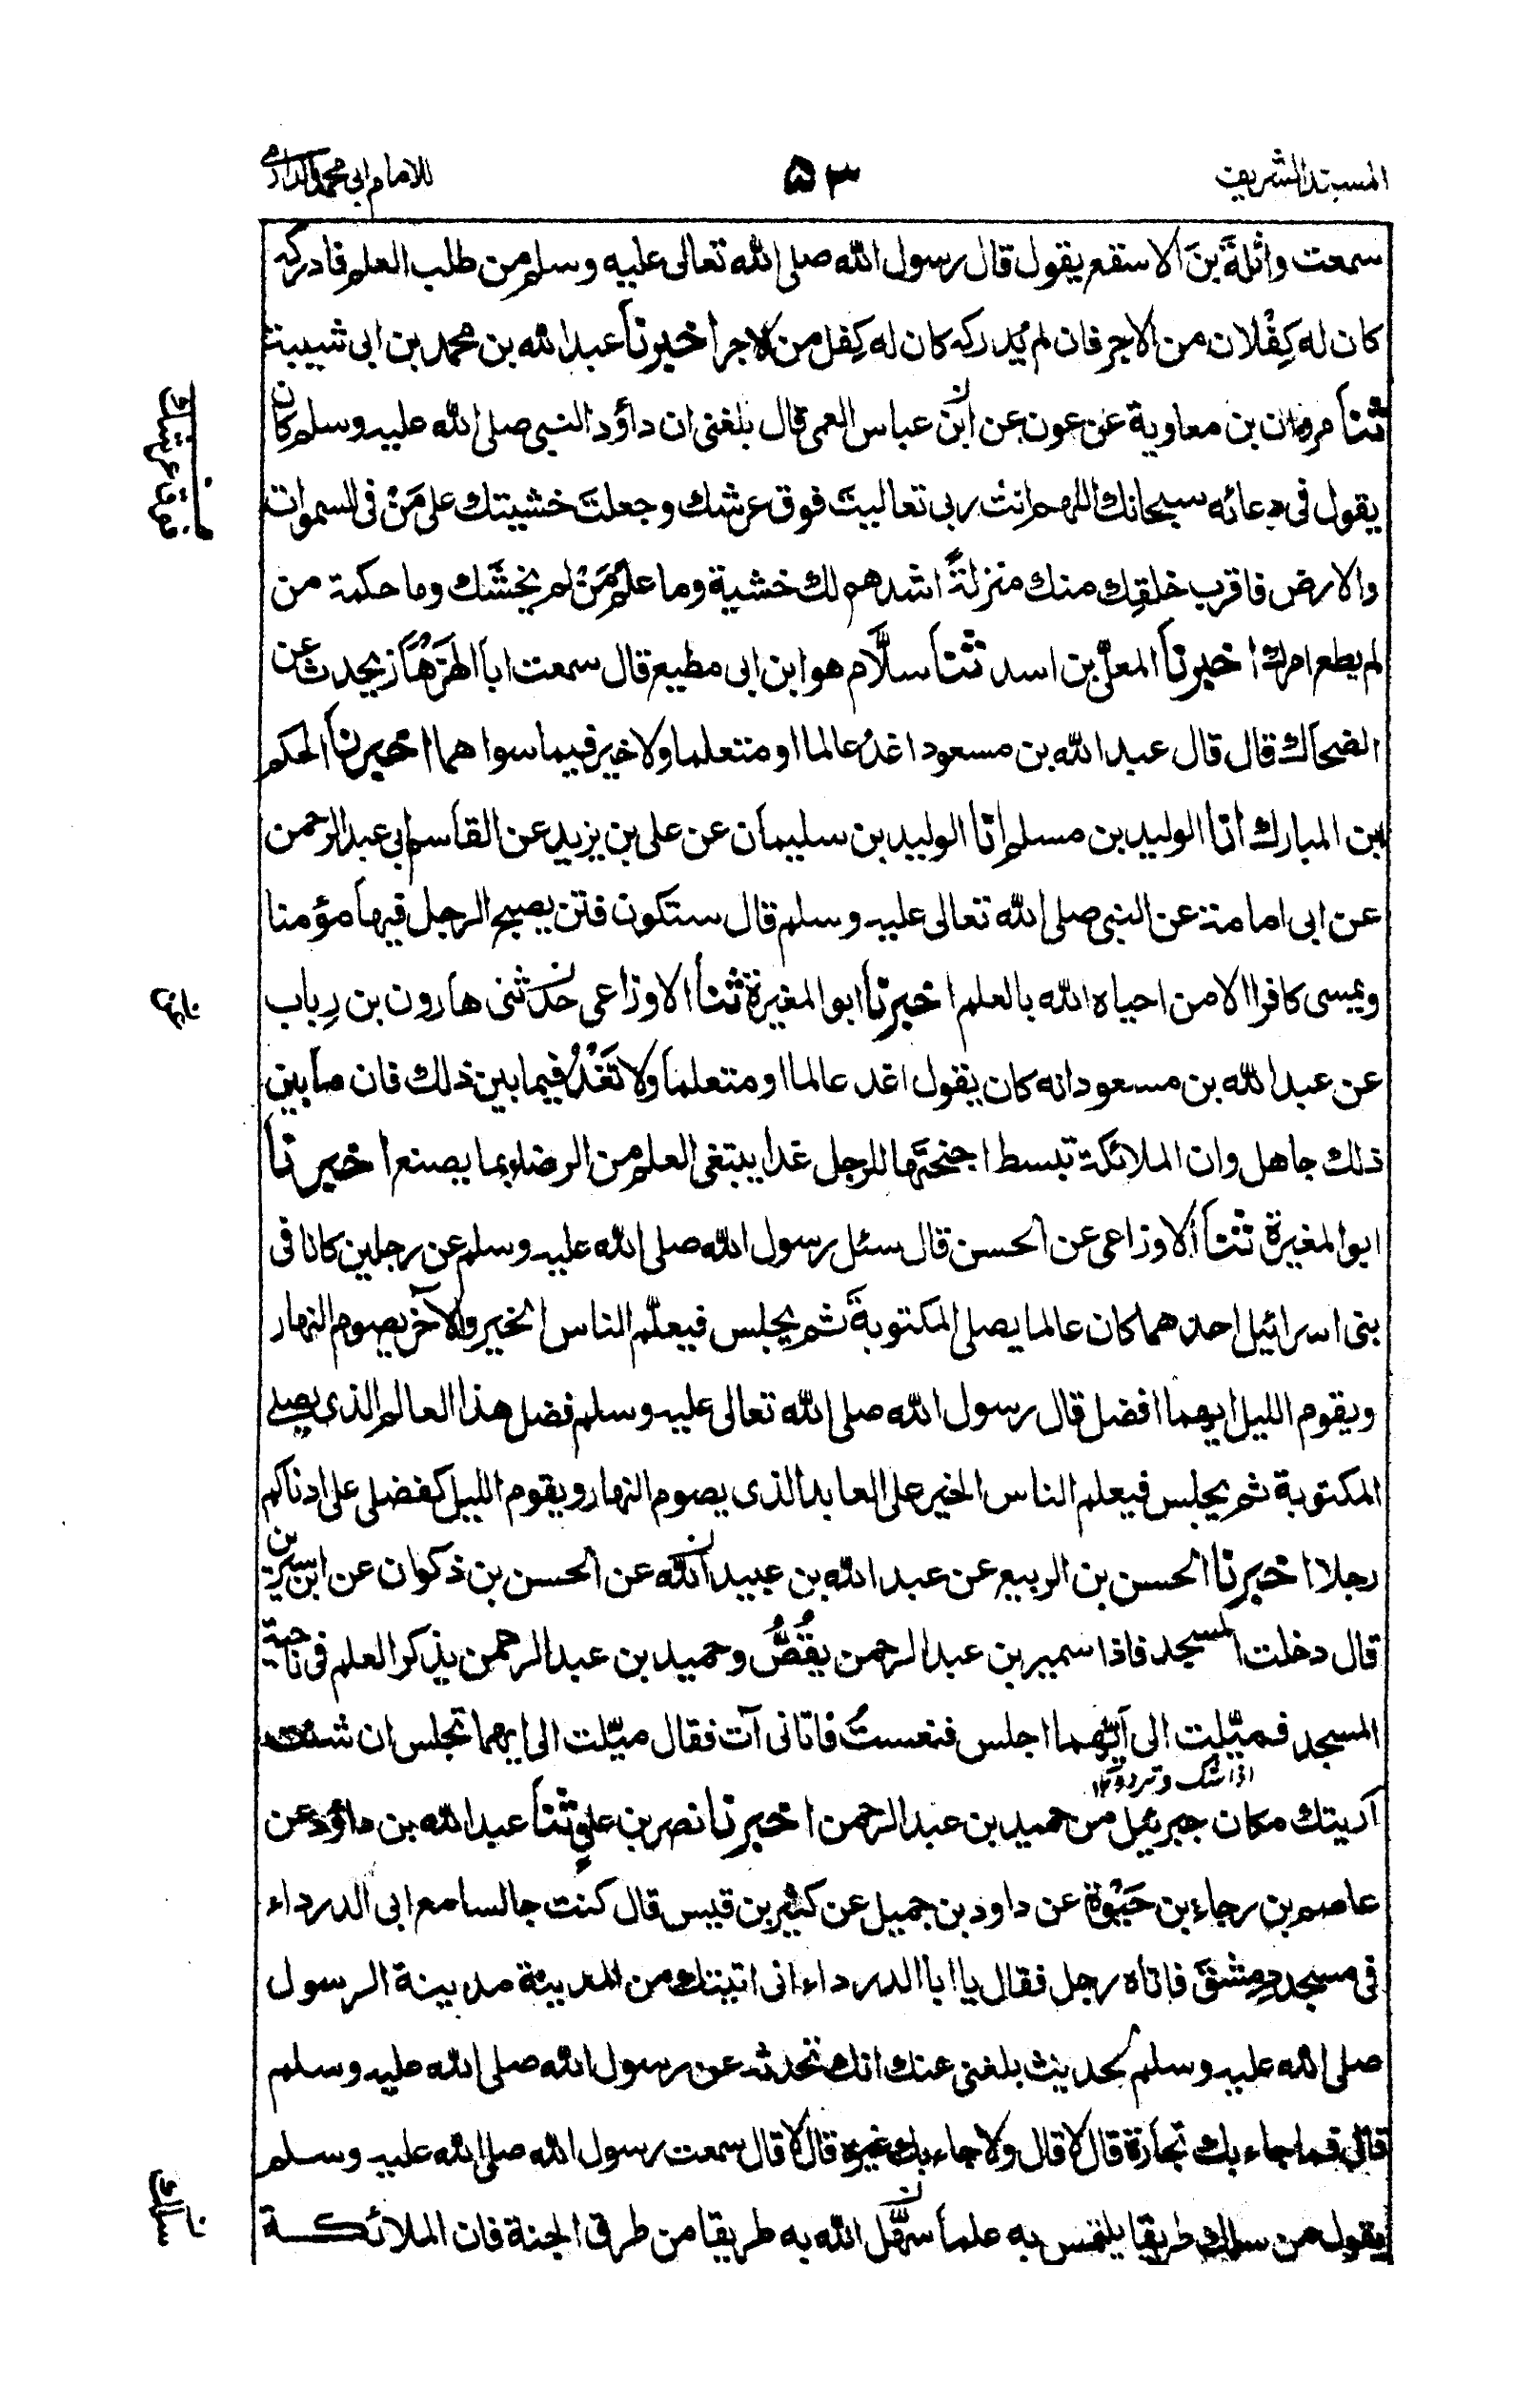 المسند الشريف
۵۳
للامام ابى محمد الدارمى
سمعت واثلةَ بنَ الاسقع يقول قال رسول الله صلى الله تعالى عليه وسلم من طلب العلم فادركه
كان له كِفْلان من الاجر فان لم يُدركه كان له كِفل من الاجر اخبرنا عبد الله بن محمد بن ابى شيبة
ثنا مروان بن معاوية عن عون عن ابن عباس العمى قال بلغنى ان داؤد النبى صلى الله عليه وسلم كان
يقول فى دعائه سبحانك اللهم انت ربى تعاليتَ فوق عرشك وجعلتَ خشيتك على مَنْ فى السموات
والارض فاقرب خلقِك منك منزلةً اشدهم لك خشية وما علم مَنْ لم يخشَك وما حكمة من
لم يطع امرك اخبرنا المعلّى بن اسد ثنا سلَّام هو ابن ابى مطيع قال سمعت ابا الهَزْهَاز يحدث عن
الضحاك قال قال عبد الله بن مسعود اغدُ عالما او متعلما ولا خير فيما سواهما اخبرنا الحكم
بن المبارك انا الوليد بن مسلم انا الوليد بن سليمان عن على بن يزيد عن القاسم ابى عبد الرحمن
عن ابى امامة عن النبى صلى الله تعالى عليه وسلم قال ستكون فتن يصبح الرجل فيها مؤمنا
ويمسى كافرا الا من احياه الله بالعلم اخبرنا ابو المغيرة ثنا الاوزاعى حدثنى هارون بن رِياب
عن عبد الله بن مسعود انه كان يقول اغد عالما او متعلما ولا تَغْدُ فيما بين ذلك فان ما بين
ذلك جاهل وان الملائكة تبسط اجنحتها للرجل غدا يبتغى العلم من الرضاء بما يصنع اخبرنا
ابو المغيرة ثنا الاوزاعى عن الحسن قال سئل رسول الله صلى الله عليه وسلم عن رجلين كانا فى
بنى اسرائيل احدهما كان عالما يصلى المكتوبةَ ثم يجلس فيعلّم الناس الخير والآخر يصوم النهار
ويقوم الليل ايهما افضل قال رسول الله صلى الله تعالى عليه وسلم فضل هذا العالم الذى يصلى
المكتوبة ثم يجلس فيعلم الناس الخير على العابد الذى يصوم النهار ويقوم الليل كفضلى على ادناكم
رجلا اخبرنا الحسن بن الربيع عن عبد الله بن عبيد الله عن الحسن بن ذكوان عن ابن سيرين
قال دخلت المسجد فاذا سمير بن عبد الرحمن يقُصُّ وحميد بن عبد الرحمن يذكر العلم فى ناحية
المسجد فميّلت الى اَيّهما اجلس فنعستُ فاتانى آت فقال ميّلت الى ايهما تجلس ان شئت
اذا شك وتردد ۱۲
اَريتك مكان جبرئيل من حميد بن عبد الرحمن اخبرنا نصر بن علىٍ ثنا عبد الله بن داؤد عن
عاصم بن رجاء بن حَيْوَة عن داود بن جميل عن كثير بن قيس قال كنت جالسا مع ابى الدرداء
فى مسجد دِمشقَ فاتاه رجل فقال يا ابا الدرداء انى اتيتك من المدينة مدينة الرسول
صلى الله عليه وسلم لحديث بلغنى عنك انك تحدثه عن رسول الله صلى الله عليه وسلم
قال فما جاء بك تجارة قال لا قال ولا جاء بك غيره قال لا قال سمعت رسول الله صلى الله عليه وسلم
يقول من سلك طريقا يلتمس به علما سهَّل الله به طريقا من طرق الجنة فان الملائكة
فوق عرشك
سلك